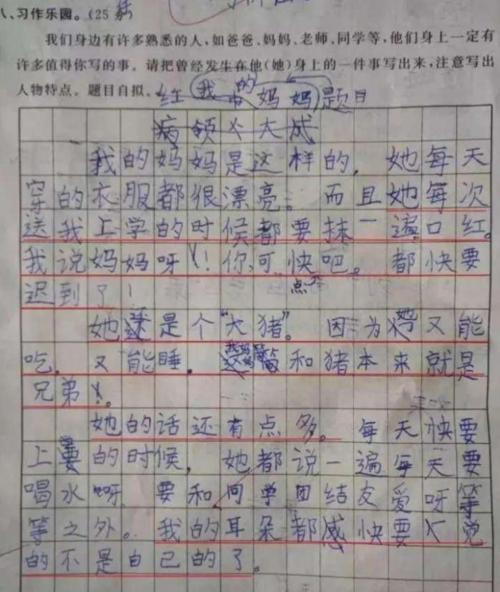 八、习作乐园。(25
我们身边有许多熟悉的人，如爸爸、妈妈、老师、同学等，他们身上一定有
许多值得你写的事。请把曾经发生在他(她)身上的一件事写出来，注意写出
人物特点。题目自拟。
红我的妈妈题目
大成
我的妈妈是这样的，她每天
穿的衣服都很漂亮。而且她每次
送我上学的时候都要抹一遍口红。
我说妈妈呀！你可快点吧。都快要
迟到了！
她还是个“大猪”。因为猪又能
吃，又能睡，我妈妈和猪本来就是
兄弟。
她的话还有点多。每天快要
上学的时候，她都说一遍每天要
喝水呀，要和同学团结友爱呀等
等之外。我的耳朵都感快要说
的不是自己的了。